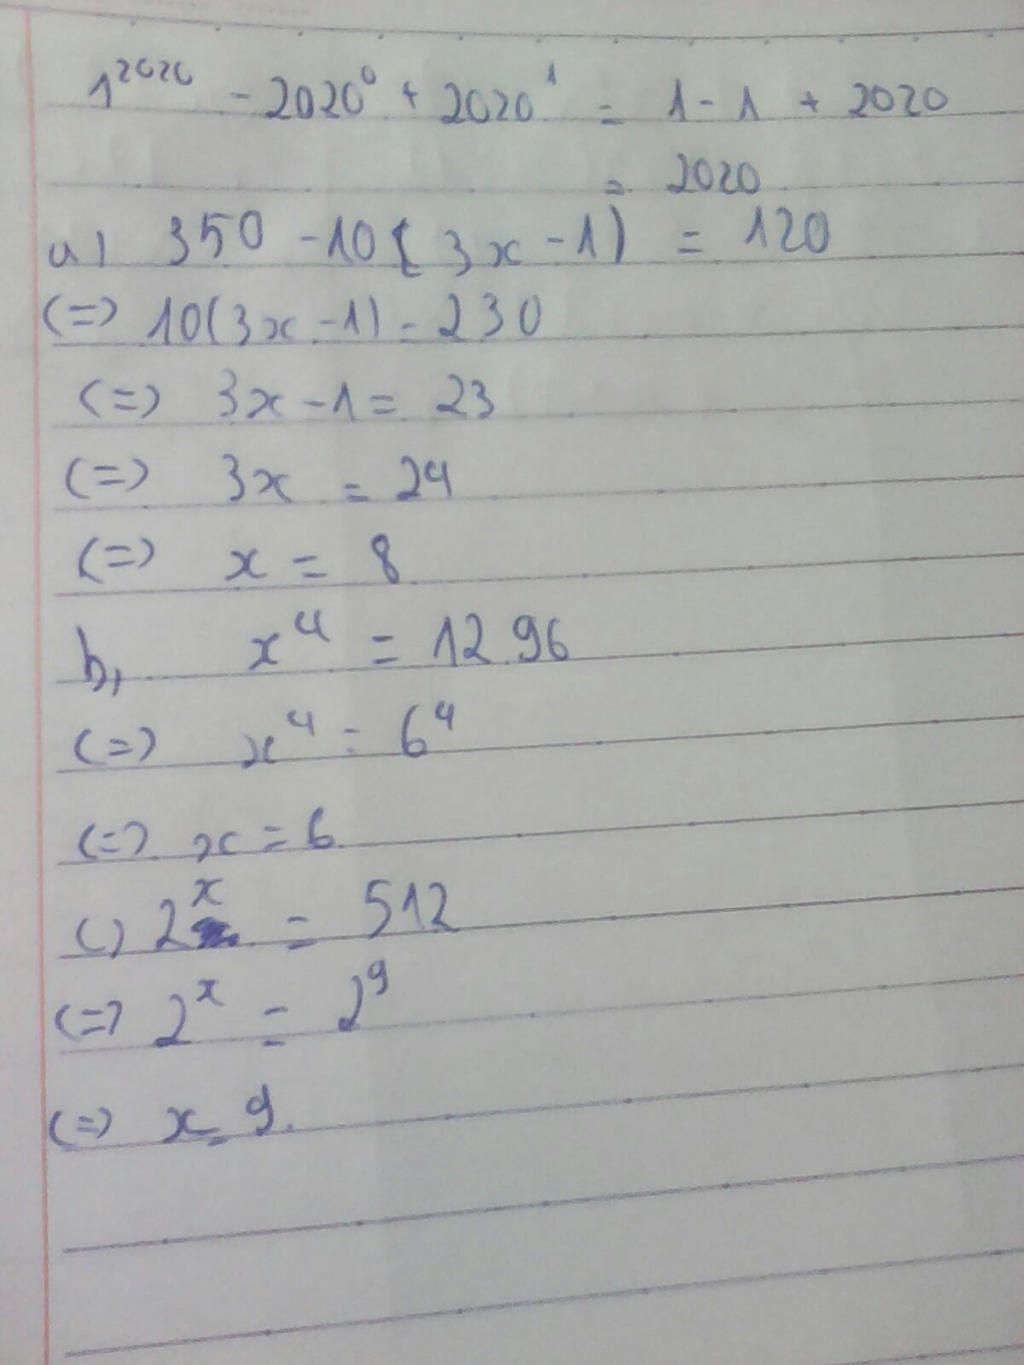 1²⁰²⁰ - 2020⁰ + 2020¹ = 1 - 1 + 2020
= 2020
a) 350 - 10(3x - 1) = 120
(=) 10(3x - 1) = 230
(=) 3x - 1 = 23
(=) 3x = 24
(=) x = 8
b, x⁴ = 1296
(=) x⁴ = 6⁴
(=) x = 6
c) 2ˣ = 512
(=) 2ˣ = 2⁹
(=) x = 9.